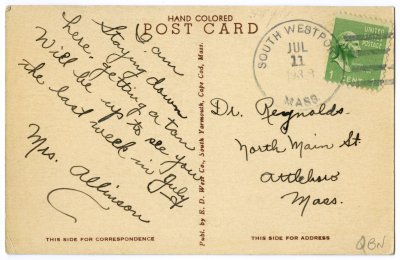 HAND COLORED
POST CARD
I am
Staying down
here, getting a tan
Will be up to see you
the last week in July
Mrs. Allinson
Publ. by E. D. West Co., South Yarmouth, Cape Cod, Mass.
SOUTH WESTPORT
JUL
11
MASS.
UNITED STATES
POSTAGE
1 CENT
Dr. Reynolds
North Main St.
Attleboro
Mass.
THIS SIDE FOR CORRESPONDENCE
THIS SIDE FOR ADDRESS
QBN